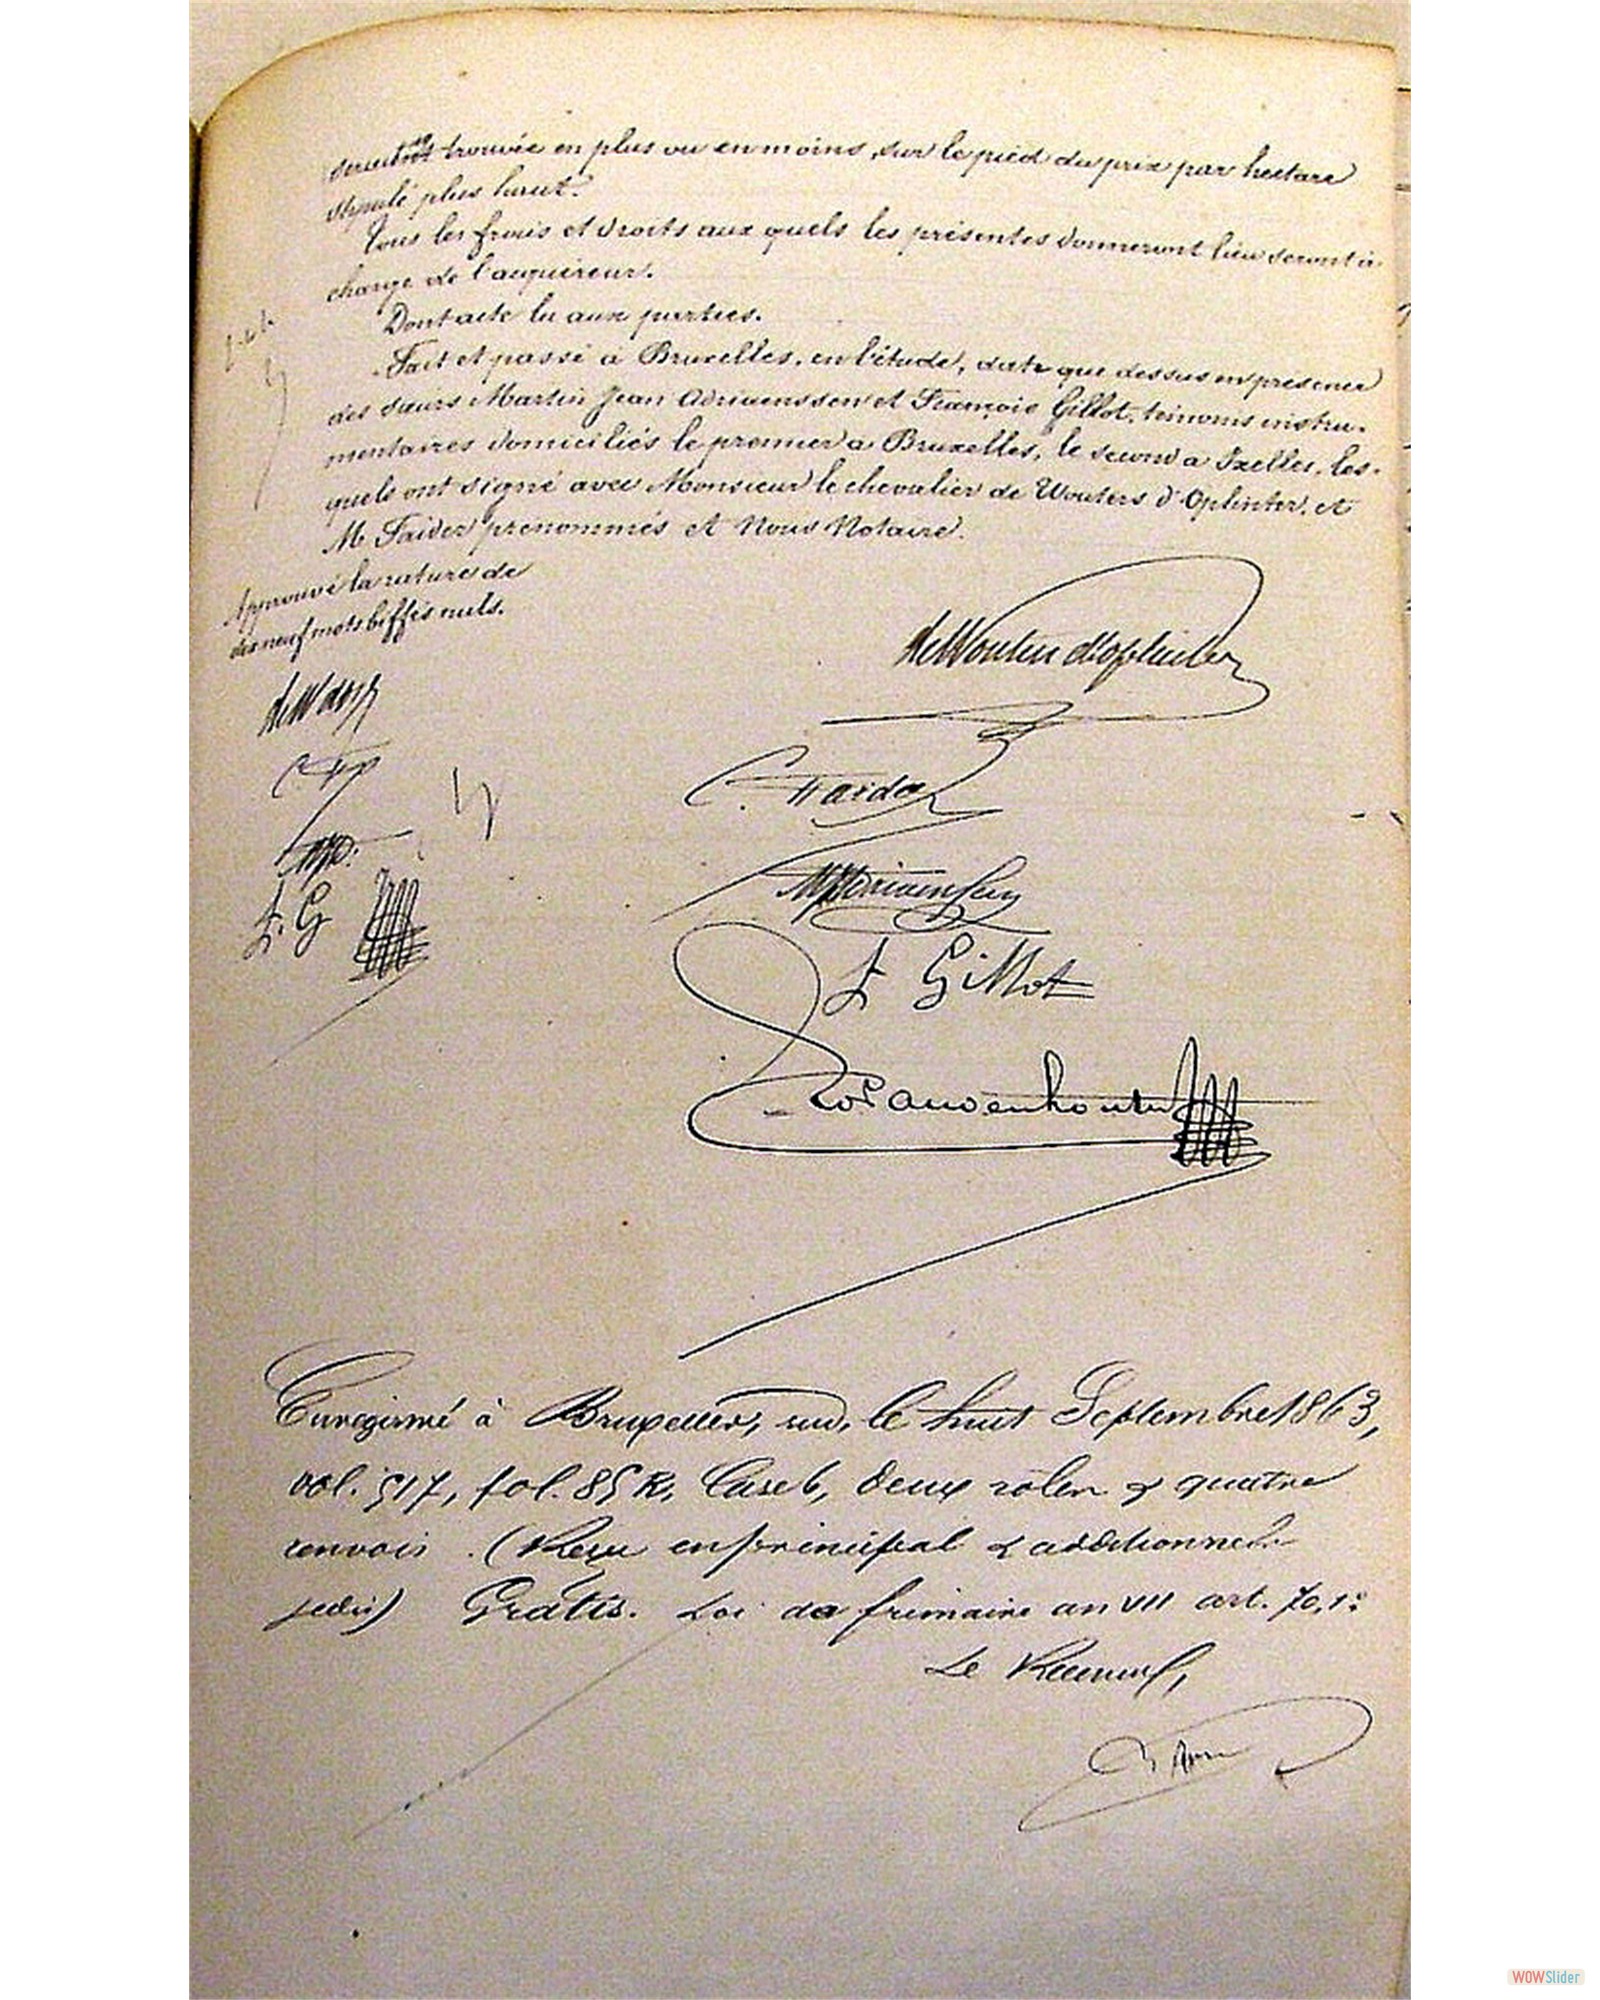 trouvée en plus ou en moins, sur le pied du prix par hectare
stipulé plus haut.
Tous les frais et droits aux quels les présentes donneront lieu seront à
charge de l'acquéreur.
Dont acte lu aux parties.
Fait et passé à Bruxelles, en l'étude, date que dessus en présence
des sieurs Martin Jean Adriaenssen et François Gillot, témoins instru-
mentaires domiciliés le premier a Bruxelles, le second a Ixelles, les-
quels ont signé avec Monsieur le chevalier de Wouters d'Oplinter, et
M. Faider prénommés et Nous Notaire.
Approuvé la rature de
des neuf mots biffés nuls.
de Wouters d'oplinter
C. Faider
MJAdriaenssen
F. G
F Gillot
Enregistré à Bruxelles, sud, le huit Septembre 1863,
vol. 517, fol. 85 R, Case 6, deux rôles & quatre
renvois. (Reçu en principal & additionnels
Gratis. Loi de frimaire an VII art. 70, 1°
Le Receveur,
WOWSlider